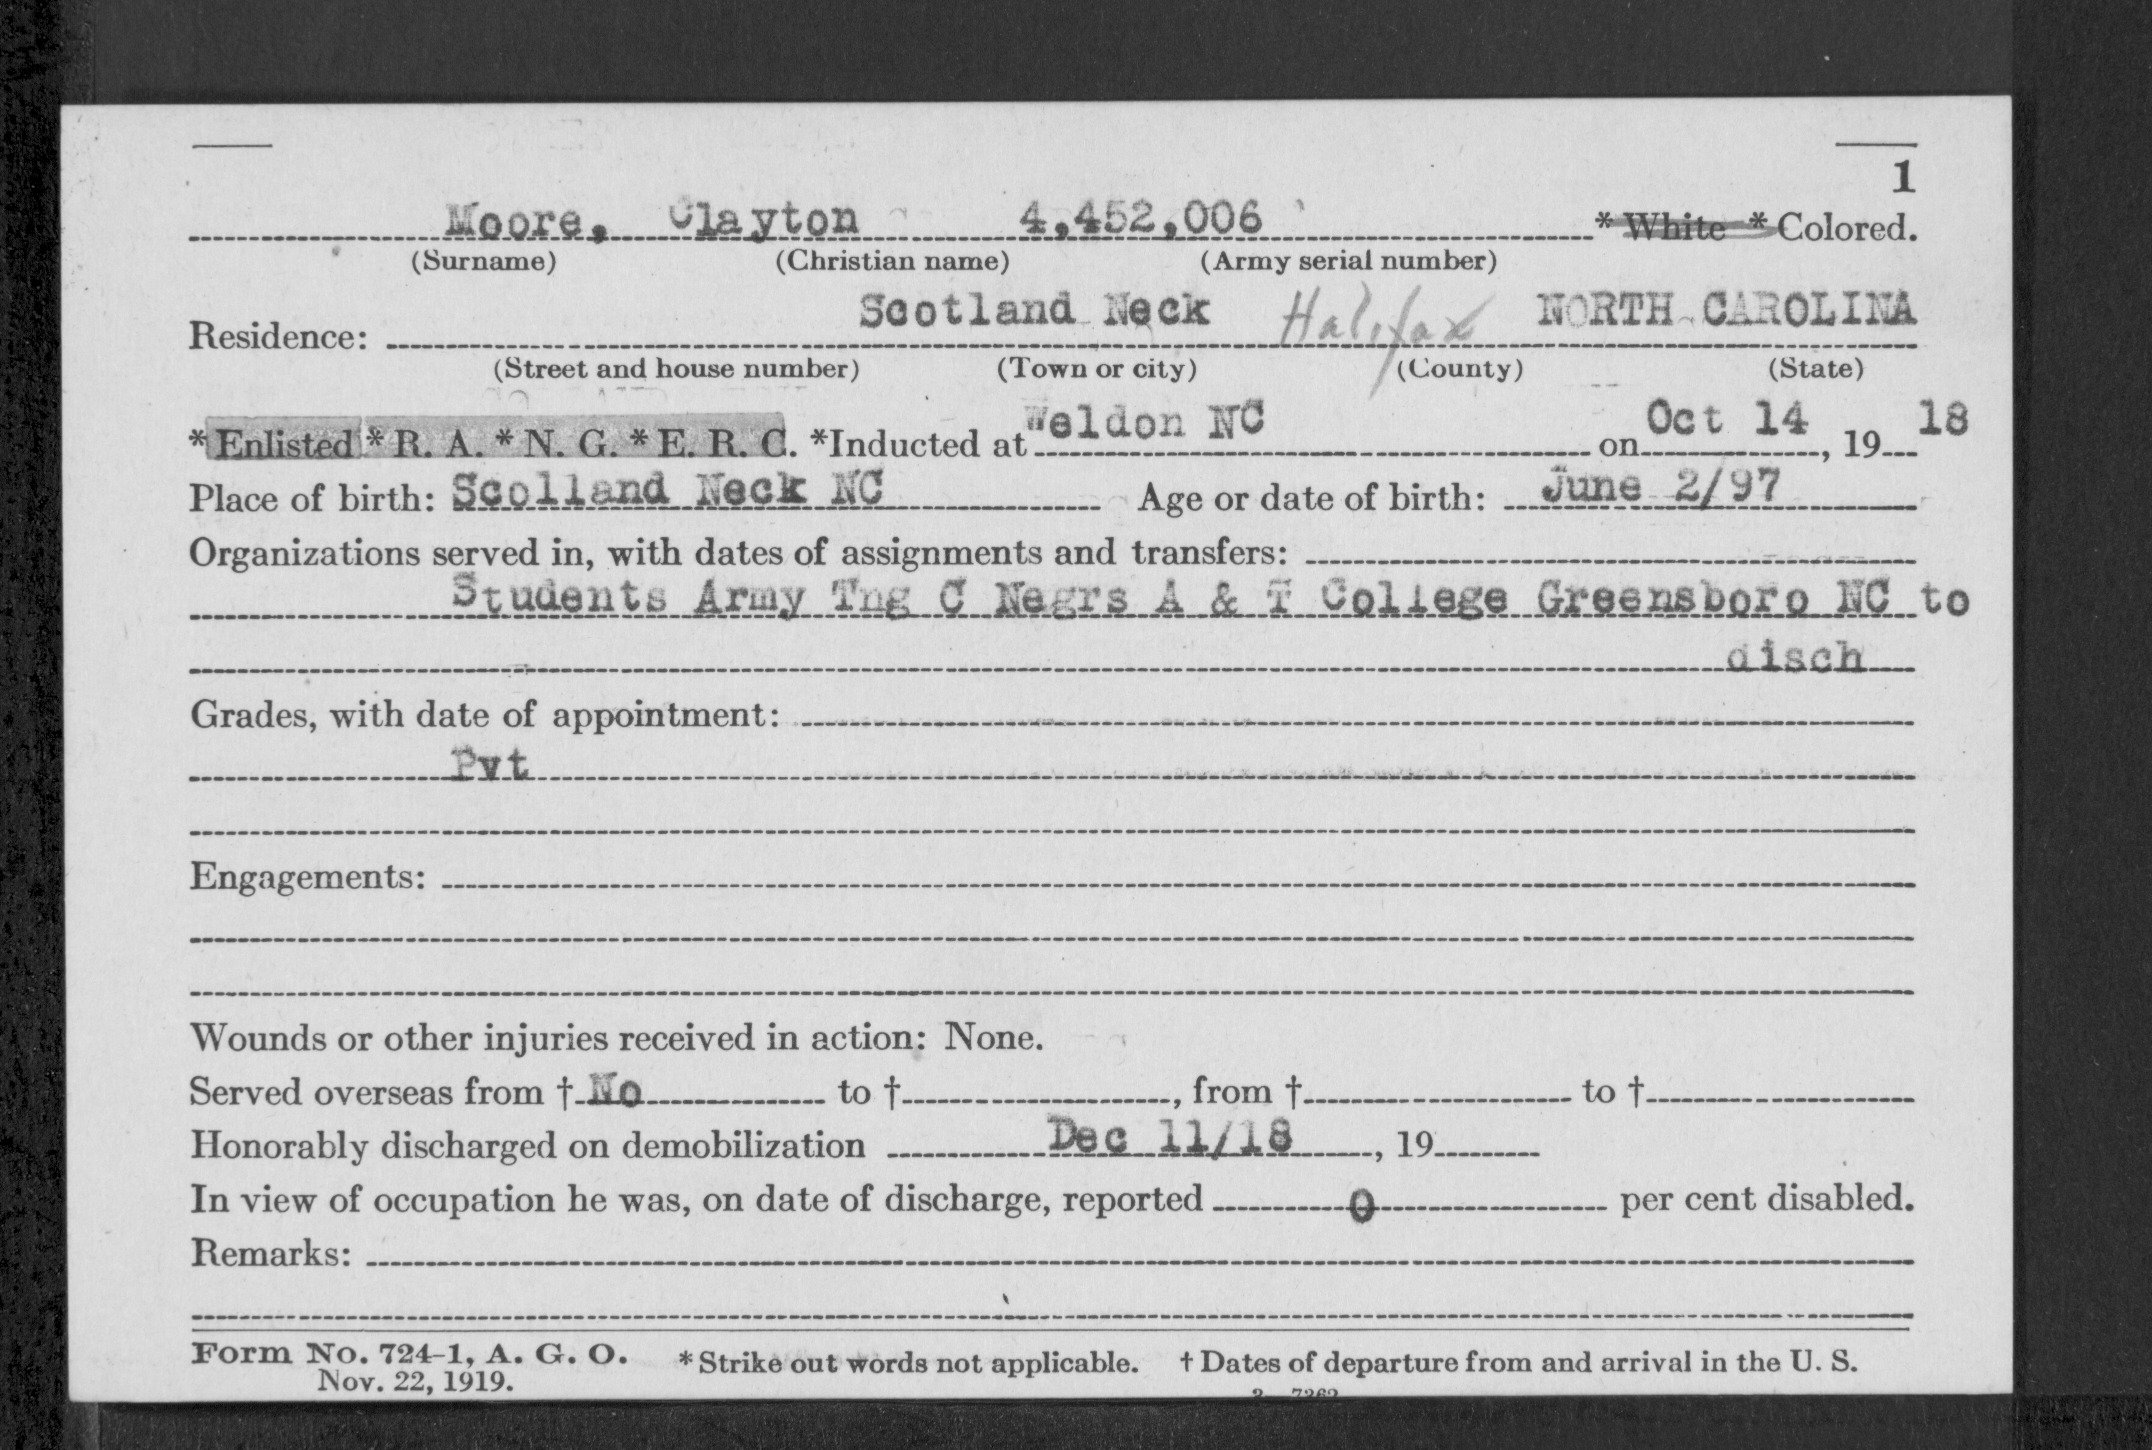 1
Moore, Clayton 4,452,006 * White * Colored.
(Surname) (Christian name) (Army serial number)
Residence: Scotland Neck Halifax NORTH CAROLINA
(Street and house number) (Town or city) (County) (State)
* Enlisted * R. A. * N. G. * E. R. C. *Inducted at Weldon NC on Oct 14, 19 18
Place of birth: Scolland Neck NC Age or date of birth: June 2/97
Organizations served in, with dates of assignments and transfers:
Students Army Tng C Negrs A & T College Greensboro NC to
disch
Grades, with date of appointment:
Pvt
Engagements:
Wounds or other injuries received in action: None.
Served overseas from † No to †, from † to †
Honorably discharged on demobilization Dec 11/18, 19
In view of occupation he was, on date of discharge, reported 0 per cent disabled.
Remarks:
Form No. 724-1, A. G. O. * Strike out words not applicable. † Dates of departure from and arrival in the U. S.
Nov. 22, 1919.